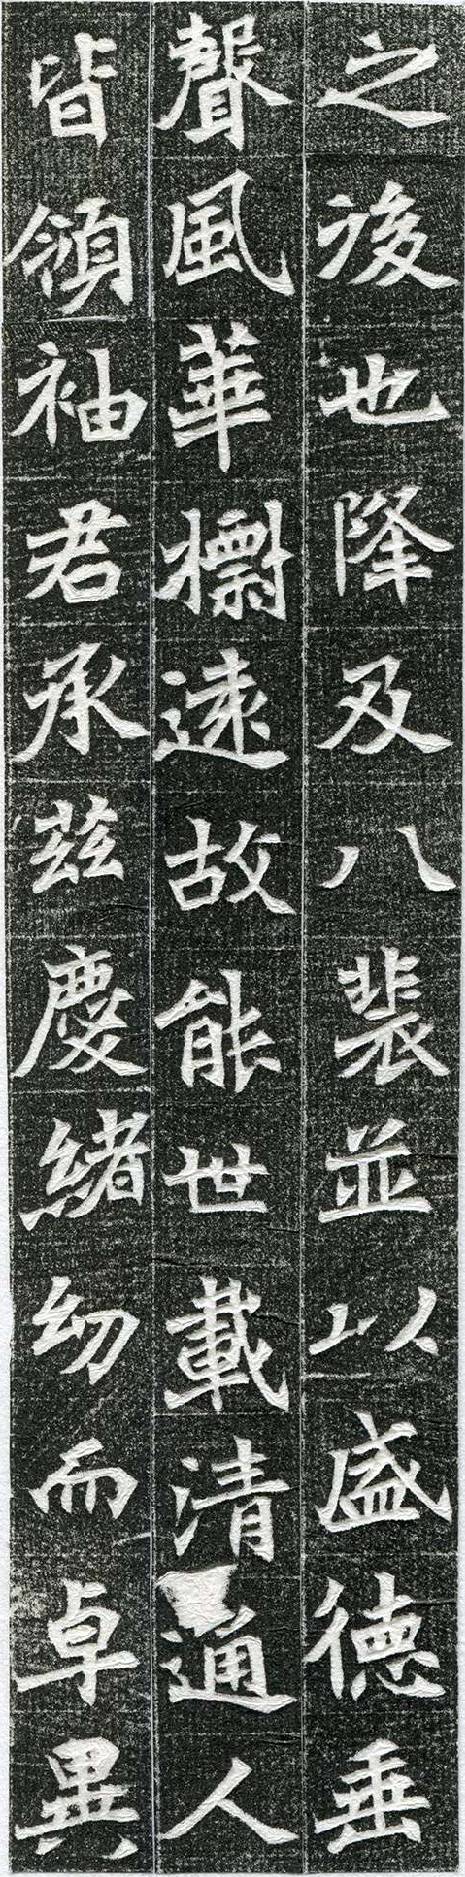 之後也降及八裴並以盛德垂
聲風華獨遠故能世載清通人
皆領袖君承茲慶緒幼而卓異